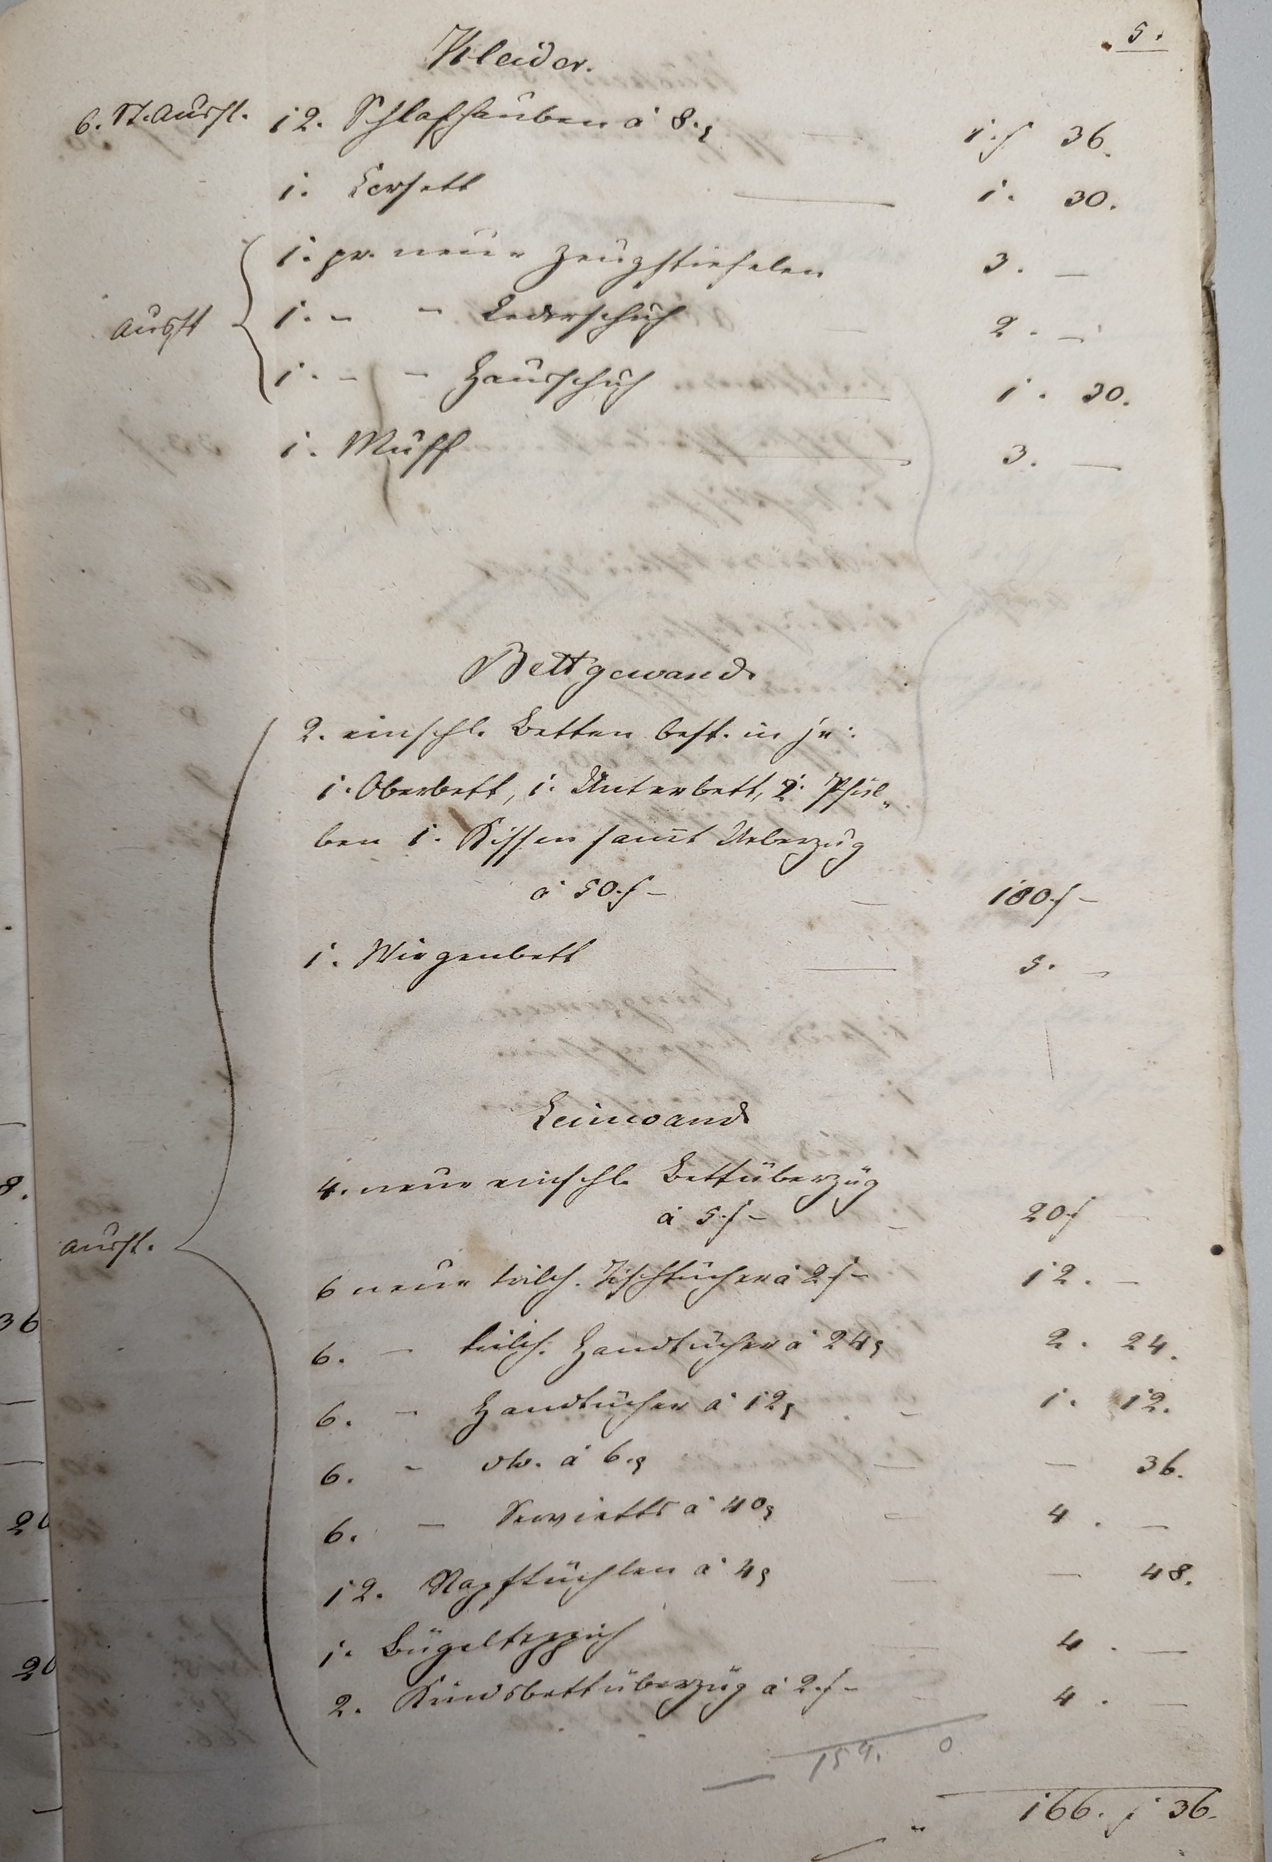 5.
Kleider.
6. St. Ausst. 12. Schlafhauben à 8.x 1.f 36.
1. Corsett — 1. 30.
1. pr. neue Zeugstiefelen 3. —
Ausst 1. " " Lederschuh — 2. —
1. " " Hausschuh — 1. 30.
1. Muff — 3. —
Bettgewand
2. einschl. Betten best. in je:
1. Oberbett, 1. Unterbett, 2. Pfül„
ben 1. Kissen sammt Ueberzug
à 50.f — — 100.f —
1. Wiegenbett — 5. —
Leinwand
4. neue einschl. Bettüberzüg
à 5.f — — 20f —
Ausst.
6 neue trilch. Tischtücher à 2f — 12. —
6. — trilch. Handtücher à 24x 2. 24.
6. — Handtücher à 12x — 1. 12.
6. — dto. à 6.x — — 36.
6. — Servietts à 40x — 4. —
12. Napftüchlen à 4x — — 48.
1. Bügelteppich — 4. —
2. Kindsbettüberzüg à 2.f — — 4. —
159. 0
166. f 36.
8.
36
20
20